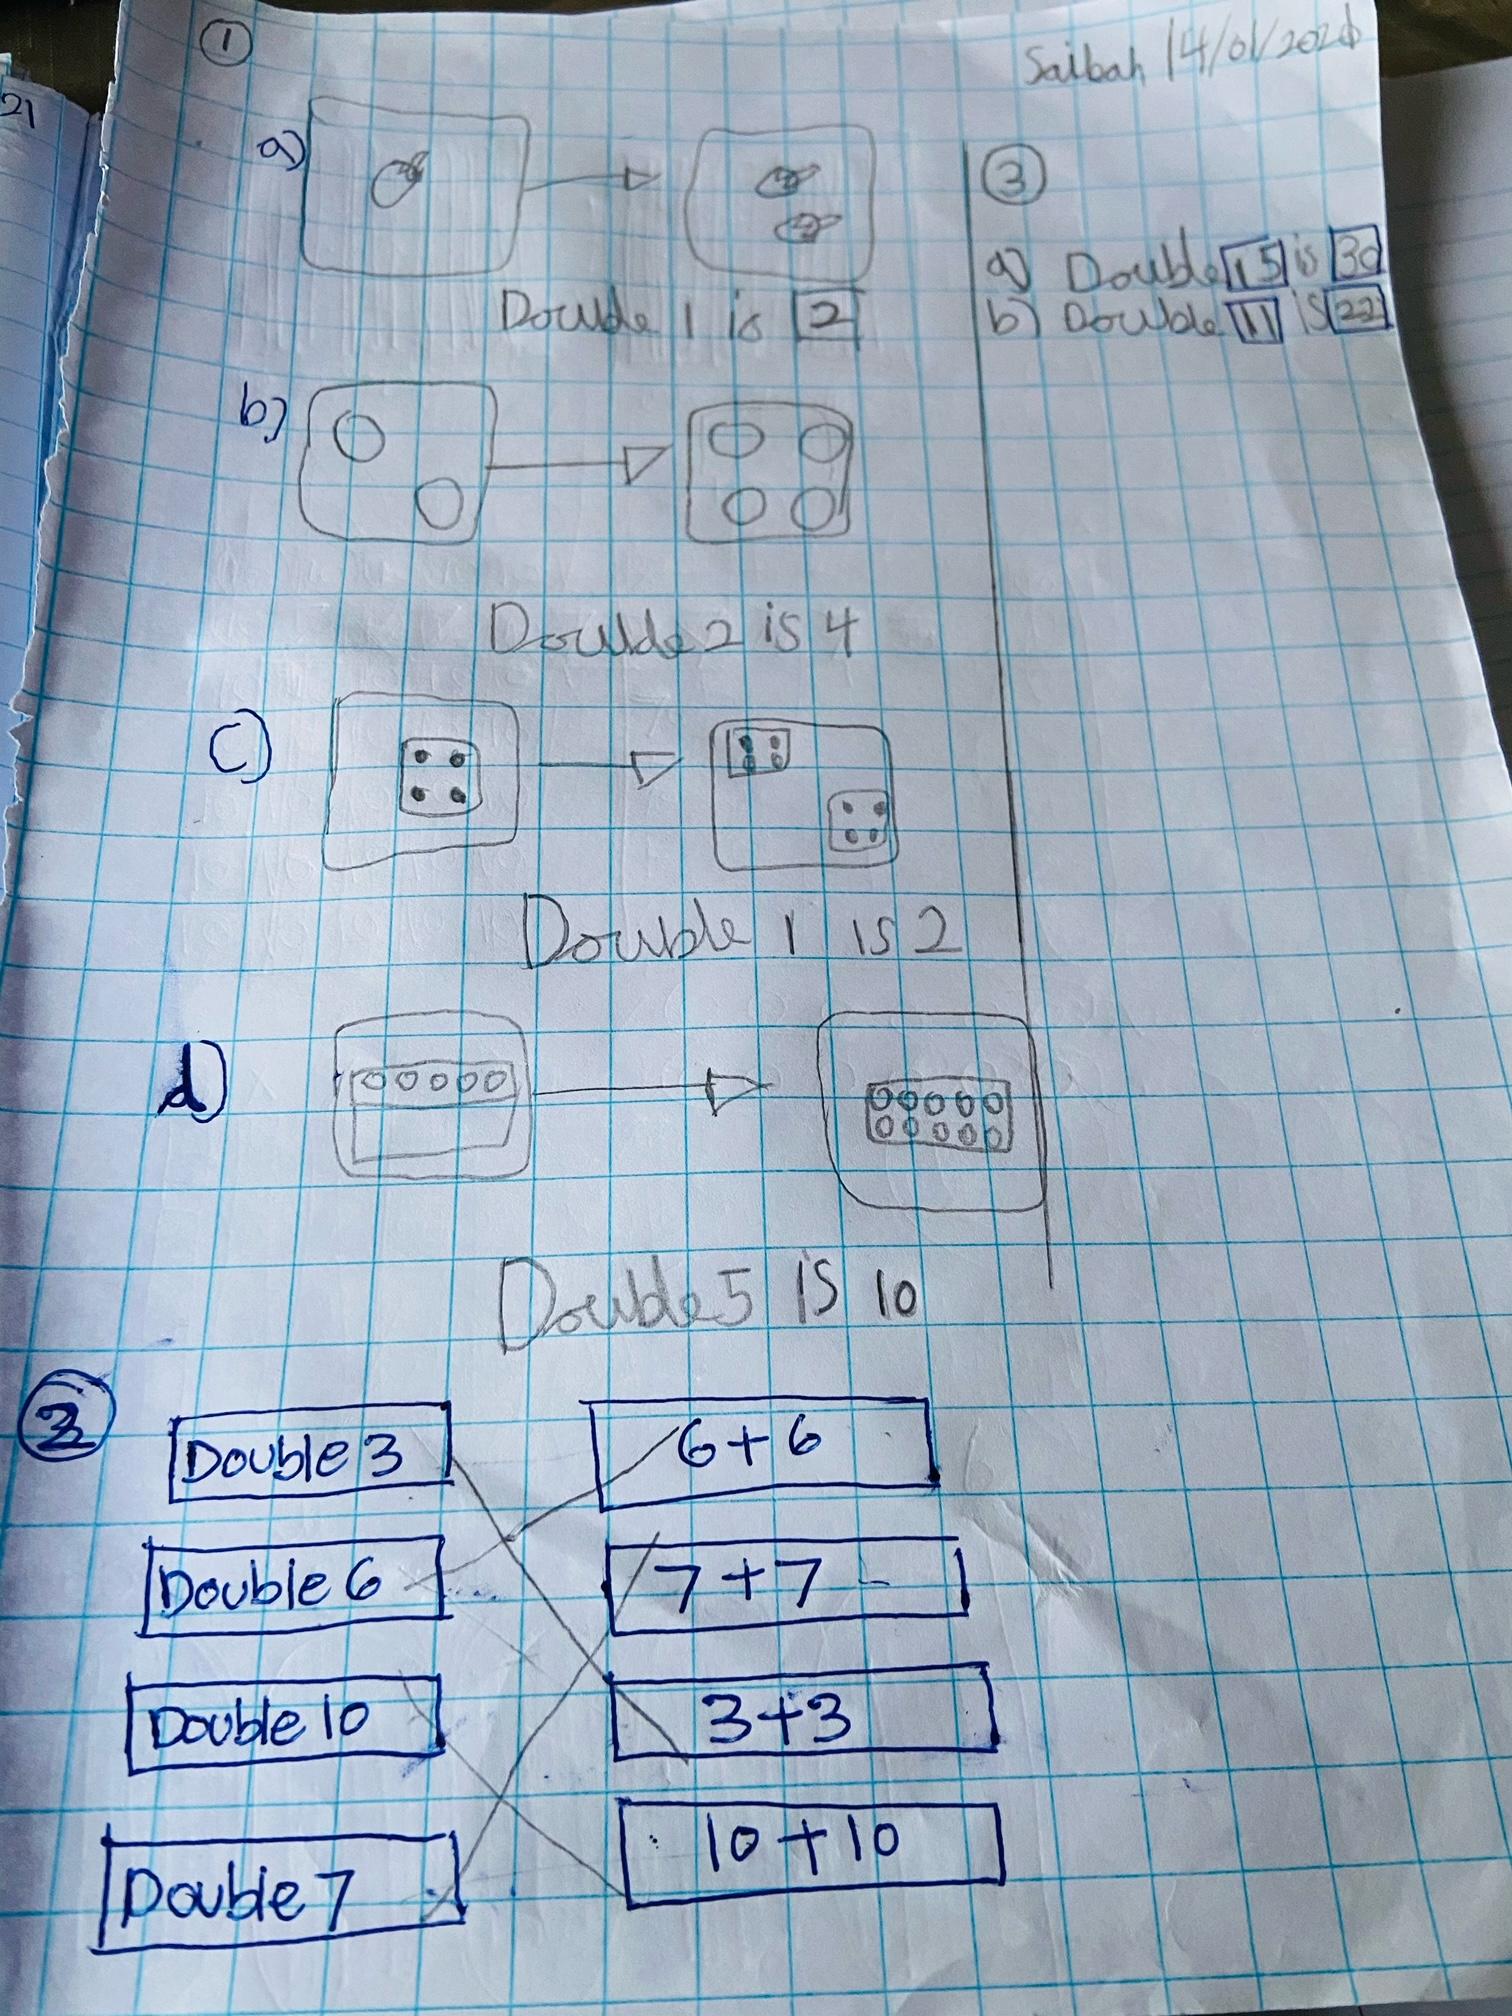 21
①
Saibah 14/01/2026
a)
Double 1 is 2
b)
Double 2 is 4
c)
Double 1 is 2
d)
Double 5 is 10
③
a) Double 15 is 30
b) Double 11 is 22
②
Double 3
6+6
Double 6
7+7
Double 10
3+3
Double 7
10+10